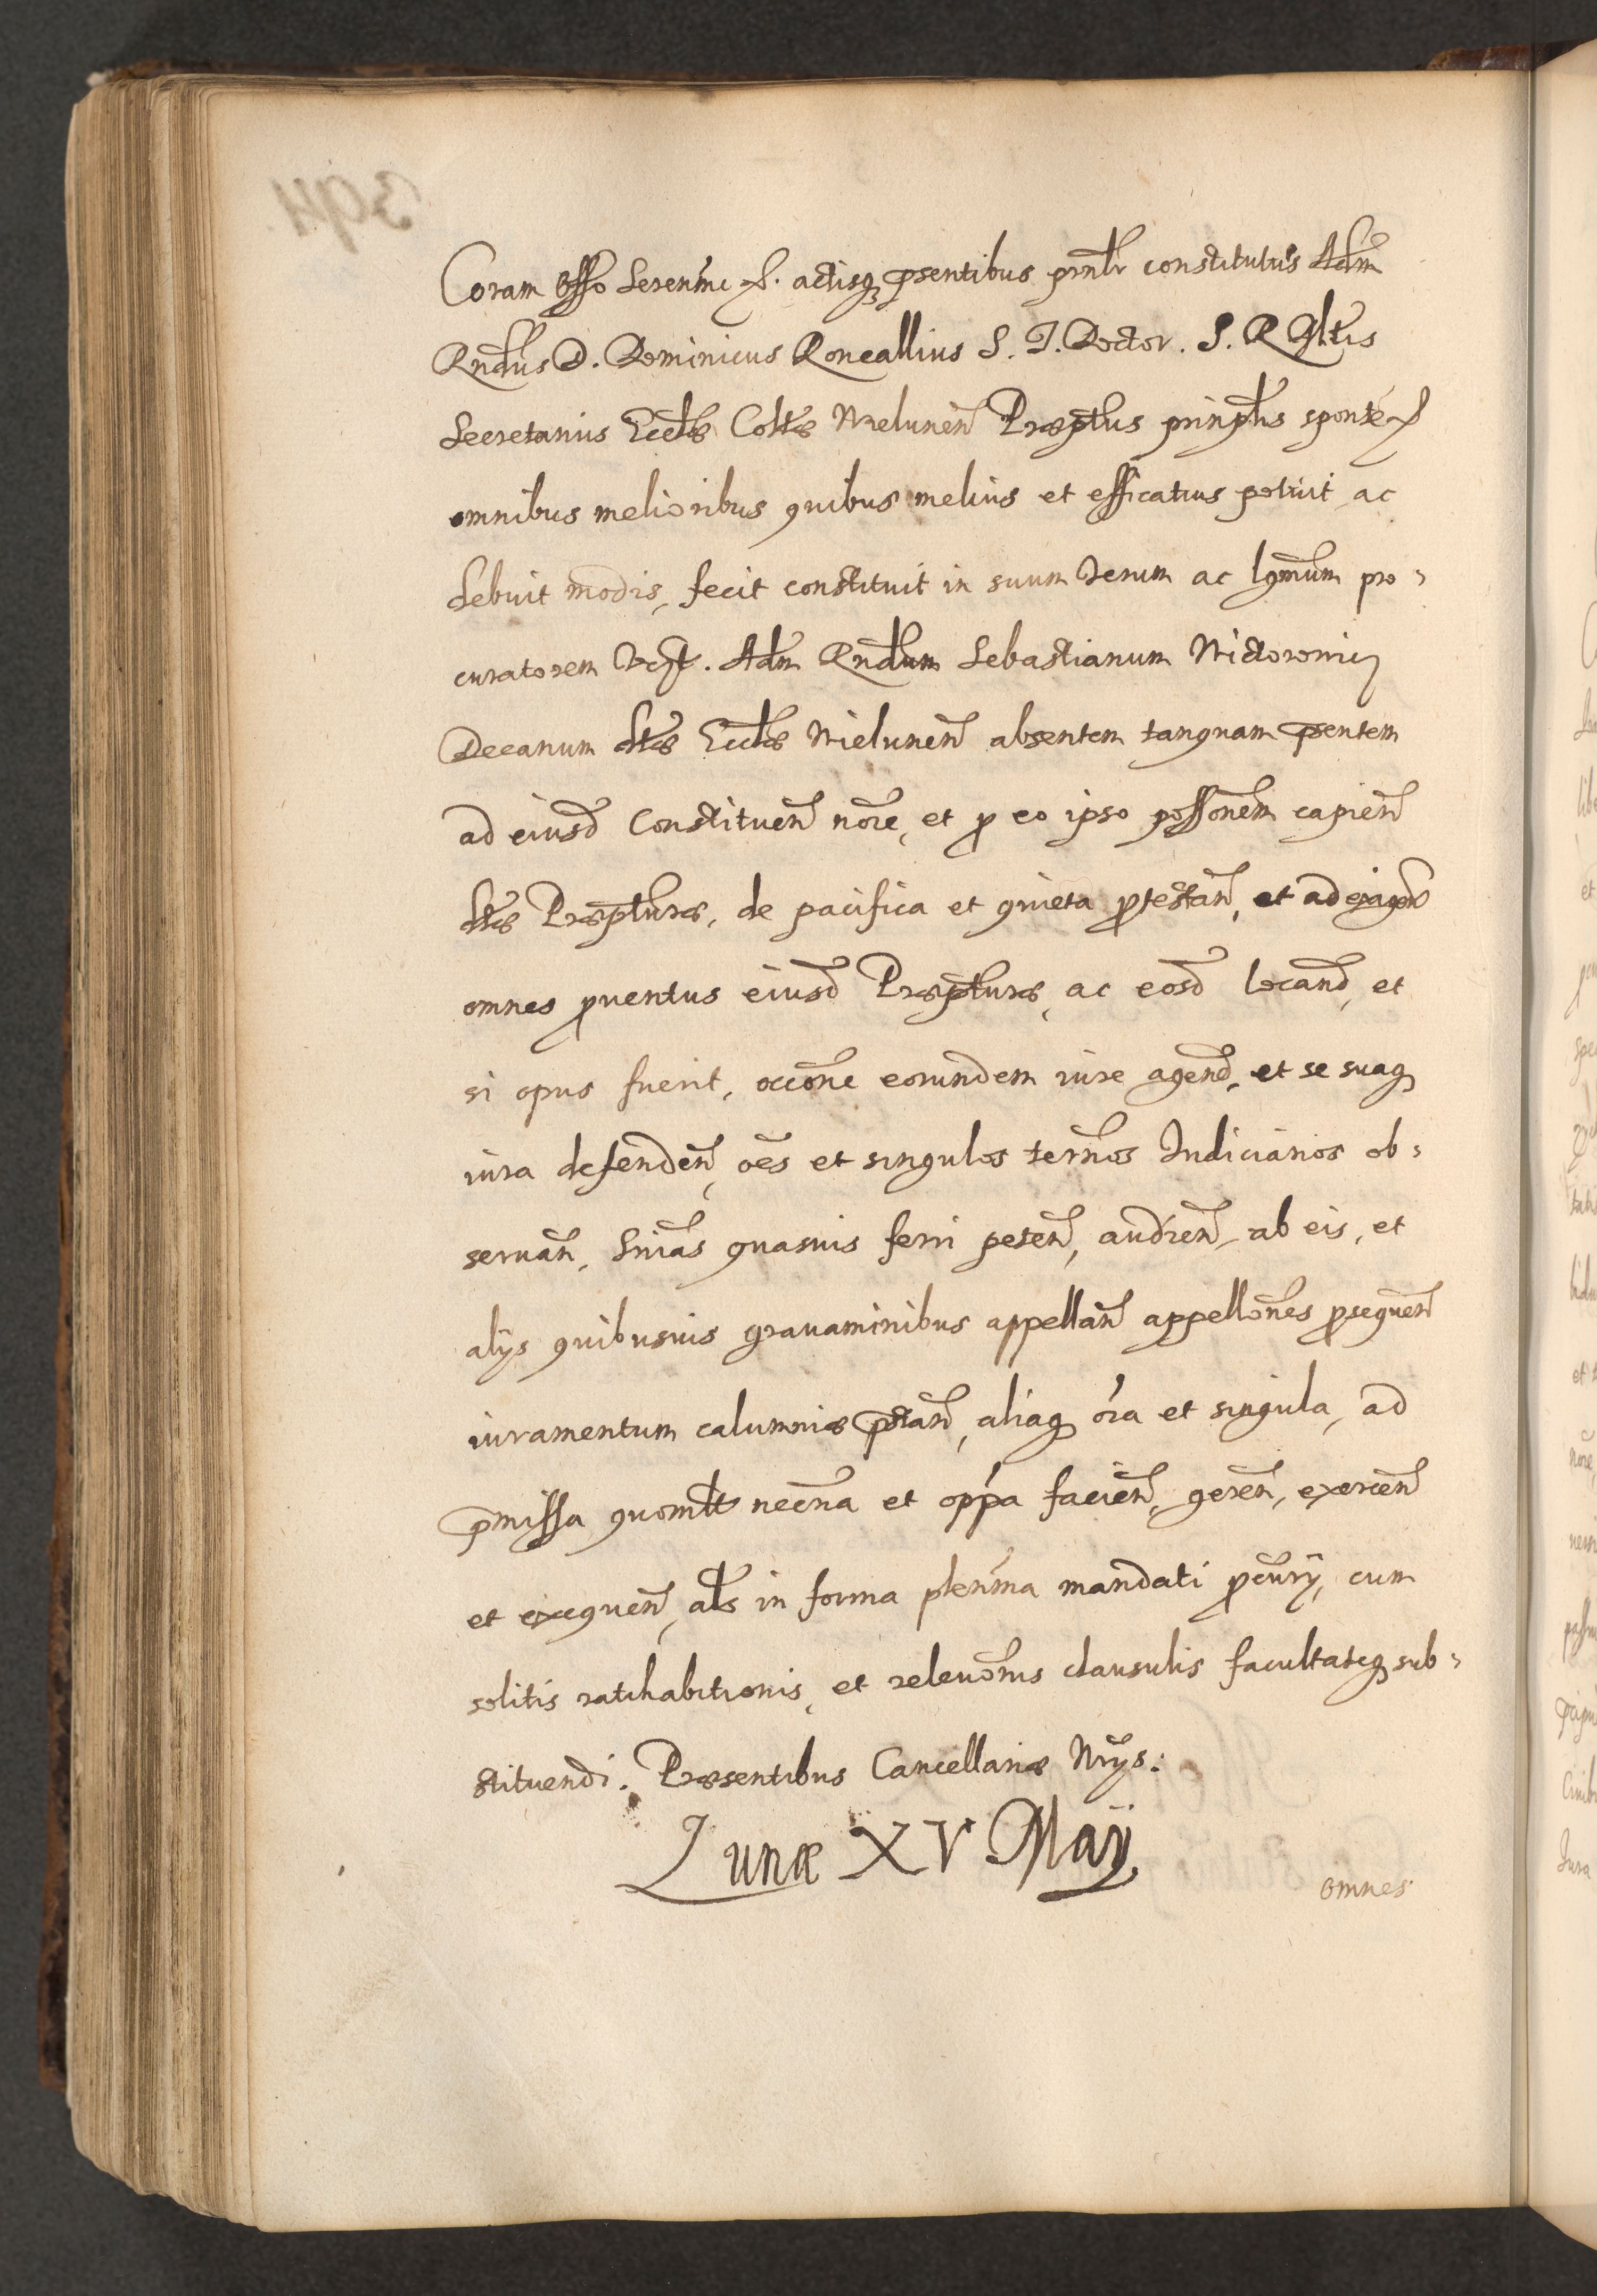 Coram Offo Serenmi etc. actisq; psentibus psnlr constitutus Adm
Rndus D. Dominicus Roncallius S. I. Doctor. S. R. Mtis
Secretarius Ecclae Collae Vielunen Praeptus prinplis sponte etc
omnibus melioribus quibus melius et efficatius potuit, ac
debuit modis, fecit constituit in suum verum ac lgmum pro-
curatorem Adm Rndum Sebastianum
Decanum dtae Ecclae Vielunen absentem tanquam psentem
ad eiusd Constituen noie, et p eo ipso possonem capien
dtae Praepturae, de pacifica et quieta ptestan, et ad exigen
omnes pventus eiusd Praepturae, ac eosd locand, et
si opus fuerit, occone eorundem iure agend, et se suaq
iura defenden, oes et singulos ternos Iudiciarios ob-
seruan, Snias quasuis ferri peten, audien, ab eis, et
alijs quibusuis grauaminibus appellan appellones psequen
iuramentum calumniae pstan, aliaq oia et singula, ad
pmissa quomlt necna et oppa facien, geren, exercen
et exequen, als in forma plenma mandati pcurij, cum
solitis ratihabitionis, et releuonis clausulis facultateq sub-
stituendi. Praesentibus Cancellariae Nrijs:
Lunae XV Maij,
omnes
394